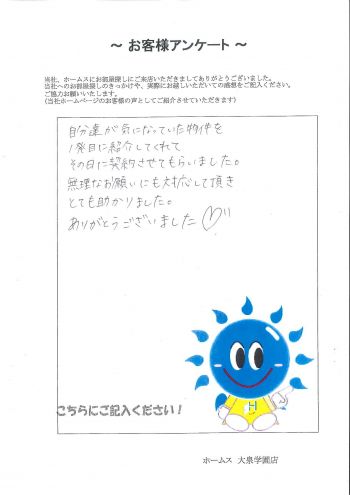 ～ お客様アンケート ～
当社、ホームスにお部屋探しにご来店いただきましてありがとうございました。
当社へのお部屋探しのきっかけや、実際にお越しいただいての感想をご記入ください。
ご協力お願いいたします。
(当社ホームページのお客様の声としてご紹介させていただきます)
自分達が気になっていた物件を
1発目に紹介してくれて
その日に契約させてもらいました。
無理なお願いにも対応して頂き
とても助かりました。
ありがとうございました♡
H
こちらにご記入ください！
ホームス 大泉学園店